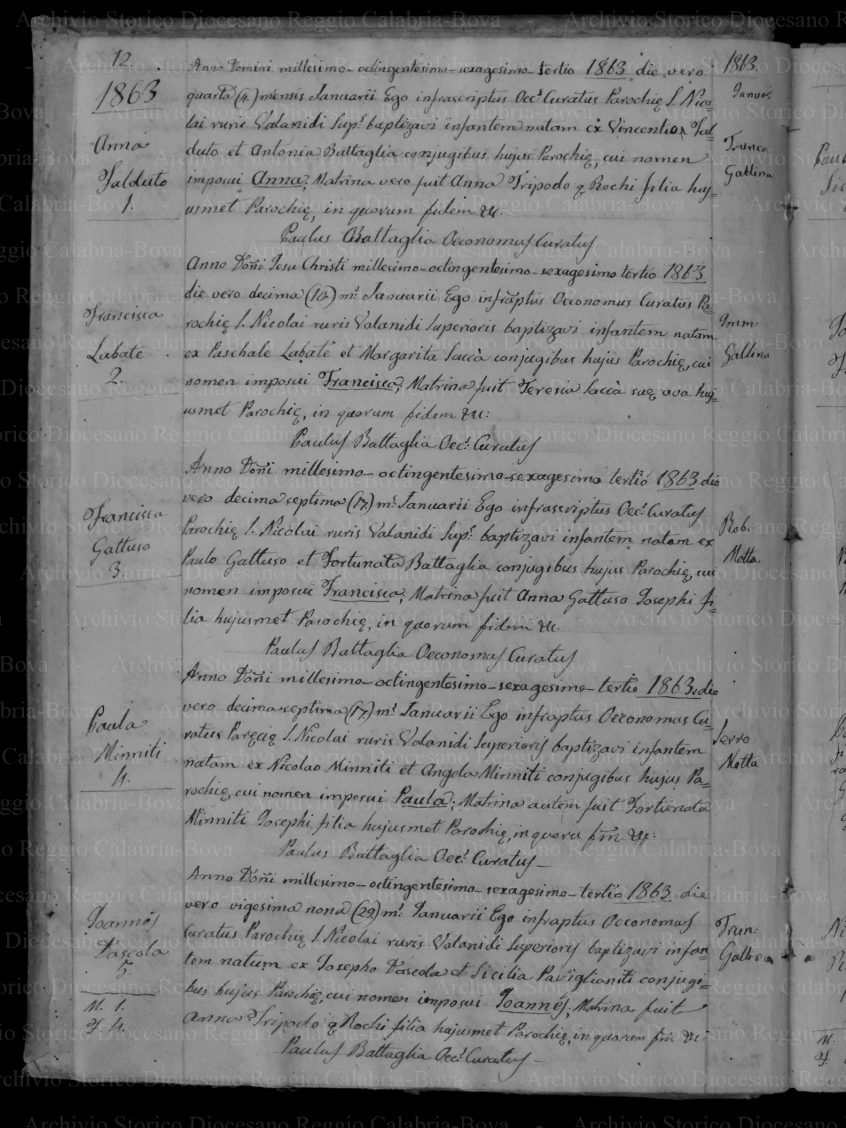 12.
1863
Anno Domini millesimo-octingentesimo-sexagesimo-tertio 1863 die vero
quarta (4) mensis Januarii Ego infrascriptus Oec.s Curatus Parochię S. Nico=
lai ruris Valanidi Sup.s baptizavi infantem natam ex Vincentio Fal=
duto et Antonia Battaglia conjugibus hujus Parochię, cui nomen
imposui Anna; Matrina vero fuit Anna Tripodo q Rochi filia huj=
usmet Parochię, in quorum fidem &c.
Paulus Battaglia Oeconomus Curatus
Anna
Falduto
1.
1863
Januar.
Trunca
Gallina
Anno Dom̃i Jesu Christi millesimo-octingentesimo-sexagesimo tertio 1863
die vero decima (10) m.s Januarii Ego infraptus Oeconomus Curatus Pa=
rochię S. Nicolai ruris Valanidi Superioris baptizavi infantem natam
ex Paschale Labate et Margarita Saccà conjugibus hujus Parochię, cui
nomen imposui Francisca; Matrina fuit Teresia Saccà suę ava huj=
usmet Parochię, in quorum fidem &c:
Paulus Battaglia Oec.s Curatus
Francisca
Labate
2.
Gallina
Anno Dom̃i millesimo-octingentesimo-sexagesimo tertio 1863 die
vero decima septima (17) m.s Januarii Ego infrascriptus Oec.s Curatus
Parochię S. Nicolai ruris Valanidi Sup.s baptizavi infantem natam ex
Paulo Gattuso et Fortunata Battaglia conjugibus hujus Parochię, cui
nomen imposui Francisca; Matrina fuit Anna Gattuso Josephi fi=
lia hujusmet Parochię, in quorum fidem &c.
Paulus Battaglia Oeconomus Curatus
Francisca
Gattuso
3.
Rob.
Motta
Anno Dom̃i millesimo-octingentesimo-sexagesimo-tertio 1863, die
vero decima septima (17) m.s Januarii Ego infraptus Oeconomus Cu=
ratus Parocię S. Nicolai ruris Valanidi Superioris baptizavi infantem
natam ex Nicolao Minniti et Angela Minniti conjugibus hujus Pa=
rochię, cui nomen imposui Paula; Matrina autem fuit Fortunata
Minniti Josephi filia hujusmet Parochię, in quoru fim &c:
Paulus Battaglia Oec.s Curatus
Paula
Minniti
4.
Serro
Motta
Anno Dom̃i millesimo-octingentesimo-sexagesimo-tertio 1863 die
vero vigesima nona (29) m.s Januarii Ego infraptus Oeconomus
Curatus Parochię S. Nicolai ruris Valanidi Superioris baptizavi infan=
tem natum ex Josepho Pascola et Sicilia Paviglianiti conjugi=
bus hujus Parochię, cui nomen imposui Joannes; Matrina fuit
Anna Tripodo q Rochi filia hujusmet Parochię, in quorum fim &c:
Paulus Battaglia Oec.s Curatus
Joannes
Pascola
5
M. 1.
F. 4.
Trun:
Archivio Storico Diocesano Reggio Calabria-Bova